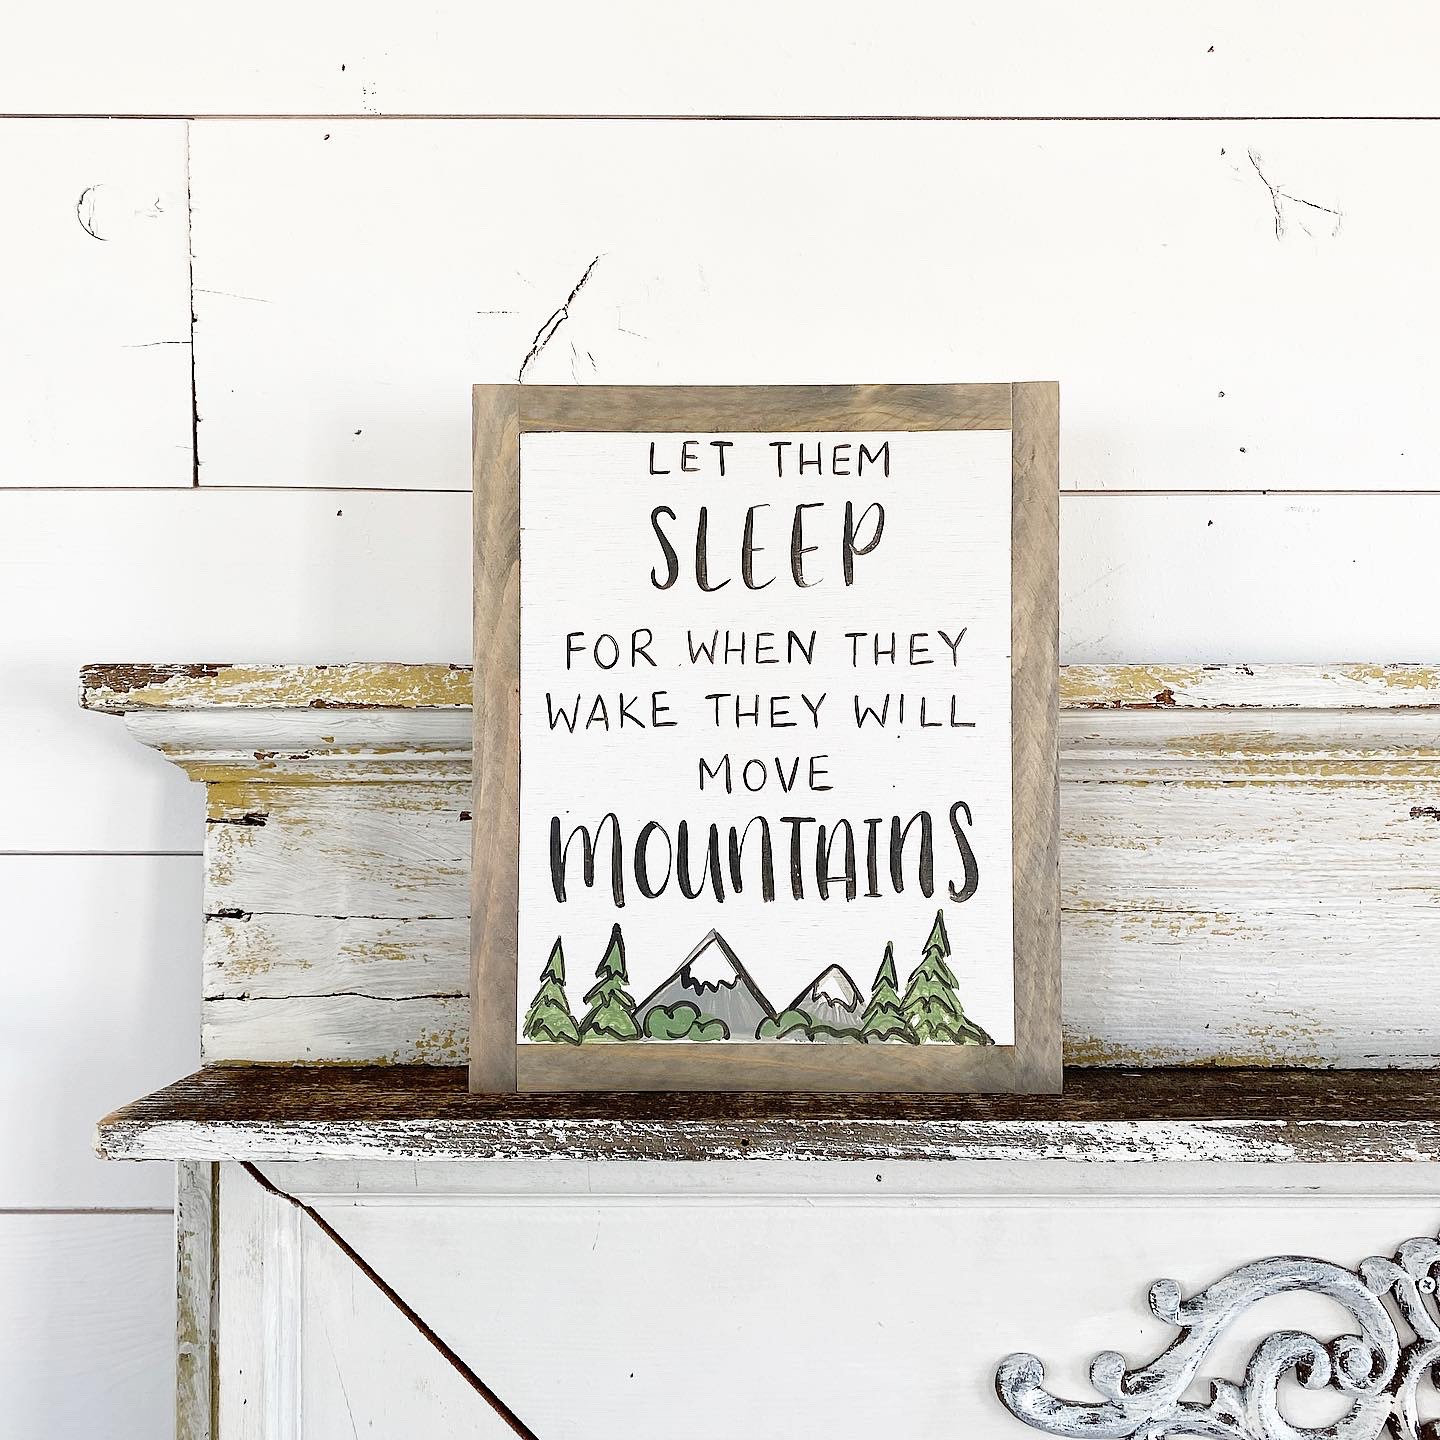 LET THEM
SLEEP
FOR WHEN THEY
WAKE THEY WILL
MOVE
MOUNTAINS